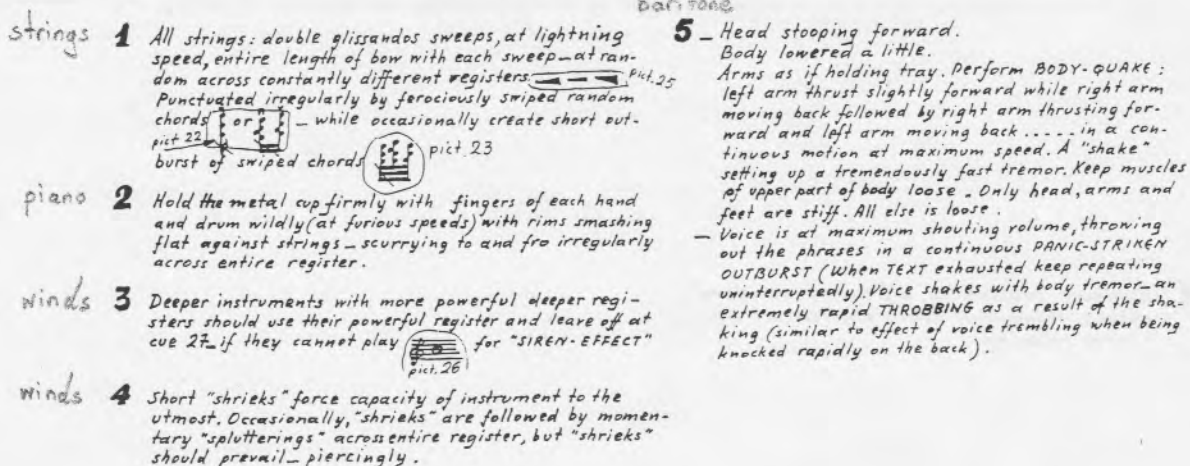 strings 1 All strings: double glissandos sweeps, at lightning
speed, entire length of bow with each sweep_at ran-
dom across constantly different registers. pict. 25
Punctuated irregularly by ferociously swiped random
chords or _ while occasionally create short out-
pict 22
burst of swiped chords pict. 23
piano 2 Hold the metal cup firmly with fingers of each hand
and drum wildly (at furious speeds) with rims smashing
flat against strings_scurrying to and fro irregularly
across entire register.
winds 3 Deeper instruments with more powerful deeper regi-
sters should use their powerful register and leave off at
cue 27_if they cannot play for "SIREN-EFFECT"
pict. 26
winds 4 Short "shrieks" force capacity of instrument to the
utmost. Occasionally, "shrieks" are followed by momen-
tary "splutterings" across entire register, but "shrieks"
should prevail_piercingly.
baritone
5 _ Head stooping forward.
Body lowered a little.
Arms as if holding tray. Perform BODY-QUAKE :
left arm thrust slightly forward while right arm
moving back followed by right arm thrusting for-
ward and left arm moving back ..... in a con-
tinuous motion at maximum speed. A "shake"
setting up a tremendously fast tremor. Keep muscles
of upper part of body loose. Only head, arms and
feet are stiff. All else is loose.
_ Voice is at maximum shouting volume, throwing
out the phrases in a continuous PANIC-STRIKEN
OUTBURST (When TEXT exhausted keep repeating
uninterruptedly). Voice shakes with body tremor_an
extremely rapid THROBBING as a result of the sha-
king (similar to effect of voice trembling when being
knocked rapidly on the back).